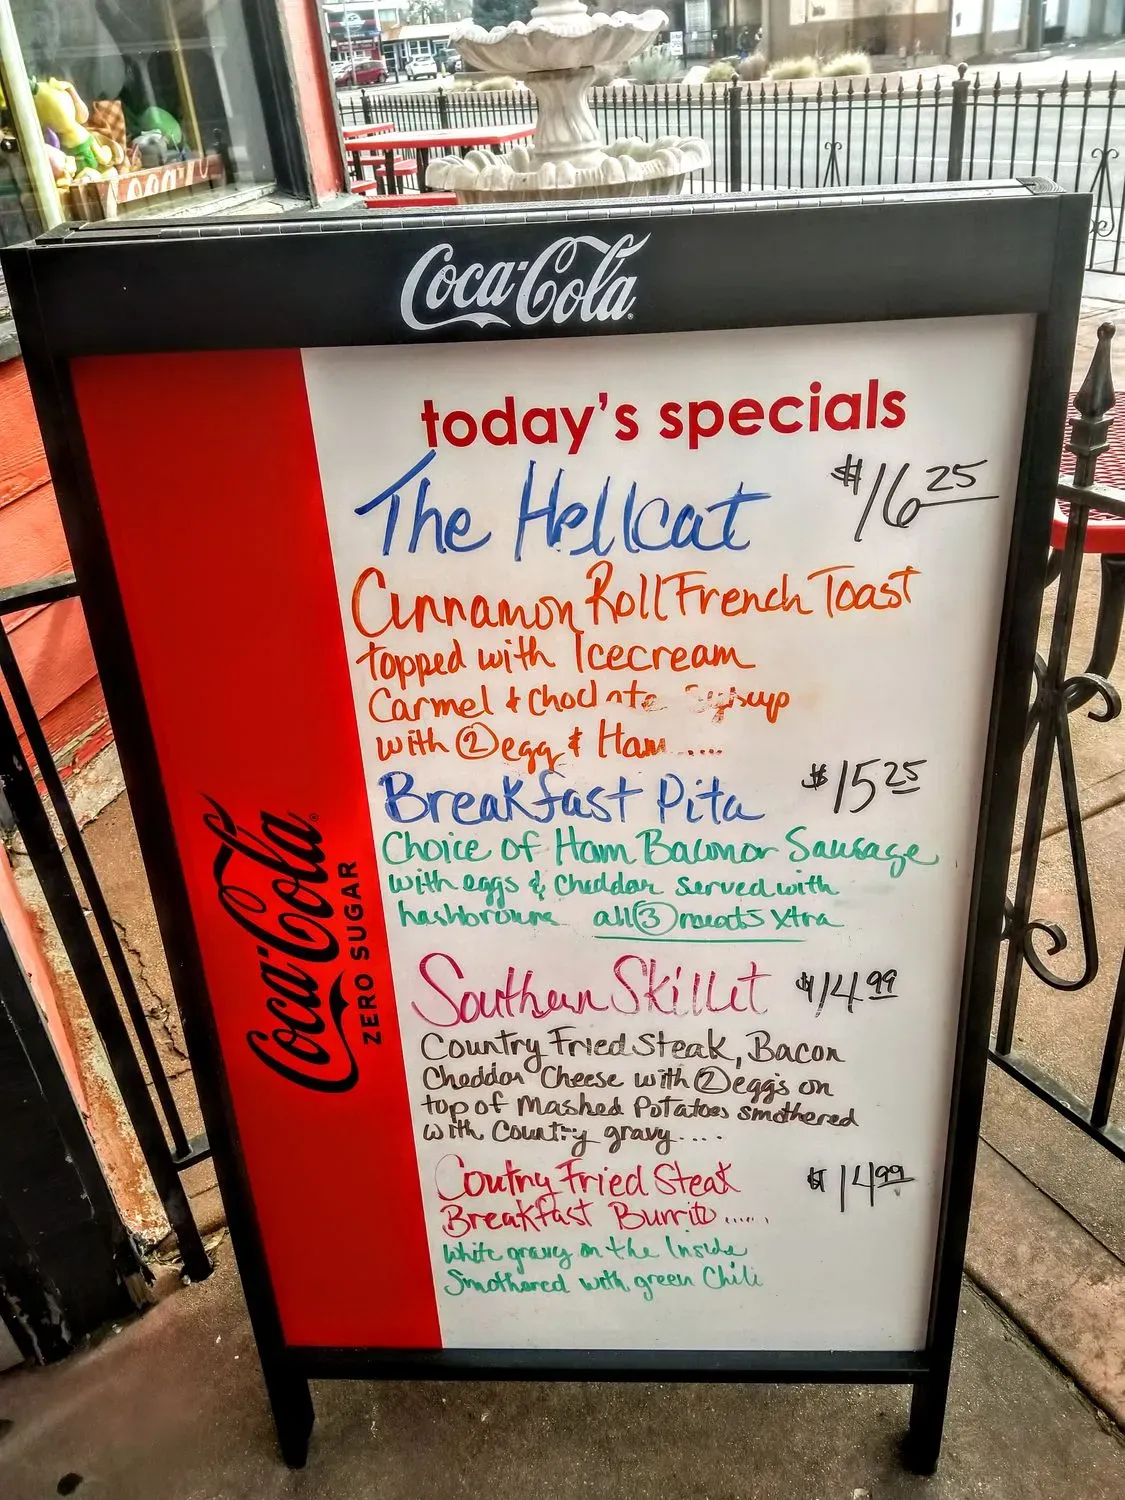 Coca-Cola
today's specials
The Hellcat $16 25
Cinnamon Roll French Toast
topped with Icecream
Carmel & Choclate Syrup
with 2 egg & Ham .....
Breakfast Pita $15 25
Choice of Ham Bacon or Sausage
with eggs & cheddar served with
hashbrowns all 3 meats Xtra
Southern Skillet $14 99
Country Fried Steak, Bacon
Cheddar Cheese with 2 eggs on
top of Mashed Potatoes smothered
with Country gravy....
Coutry Fried Steak $14 99
Breakfast Burrito ......
White gravy on the Inside
Smothered with green Chili
Coca-Cola
ZERO SUGAR